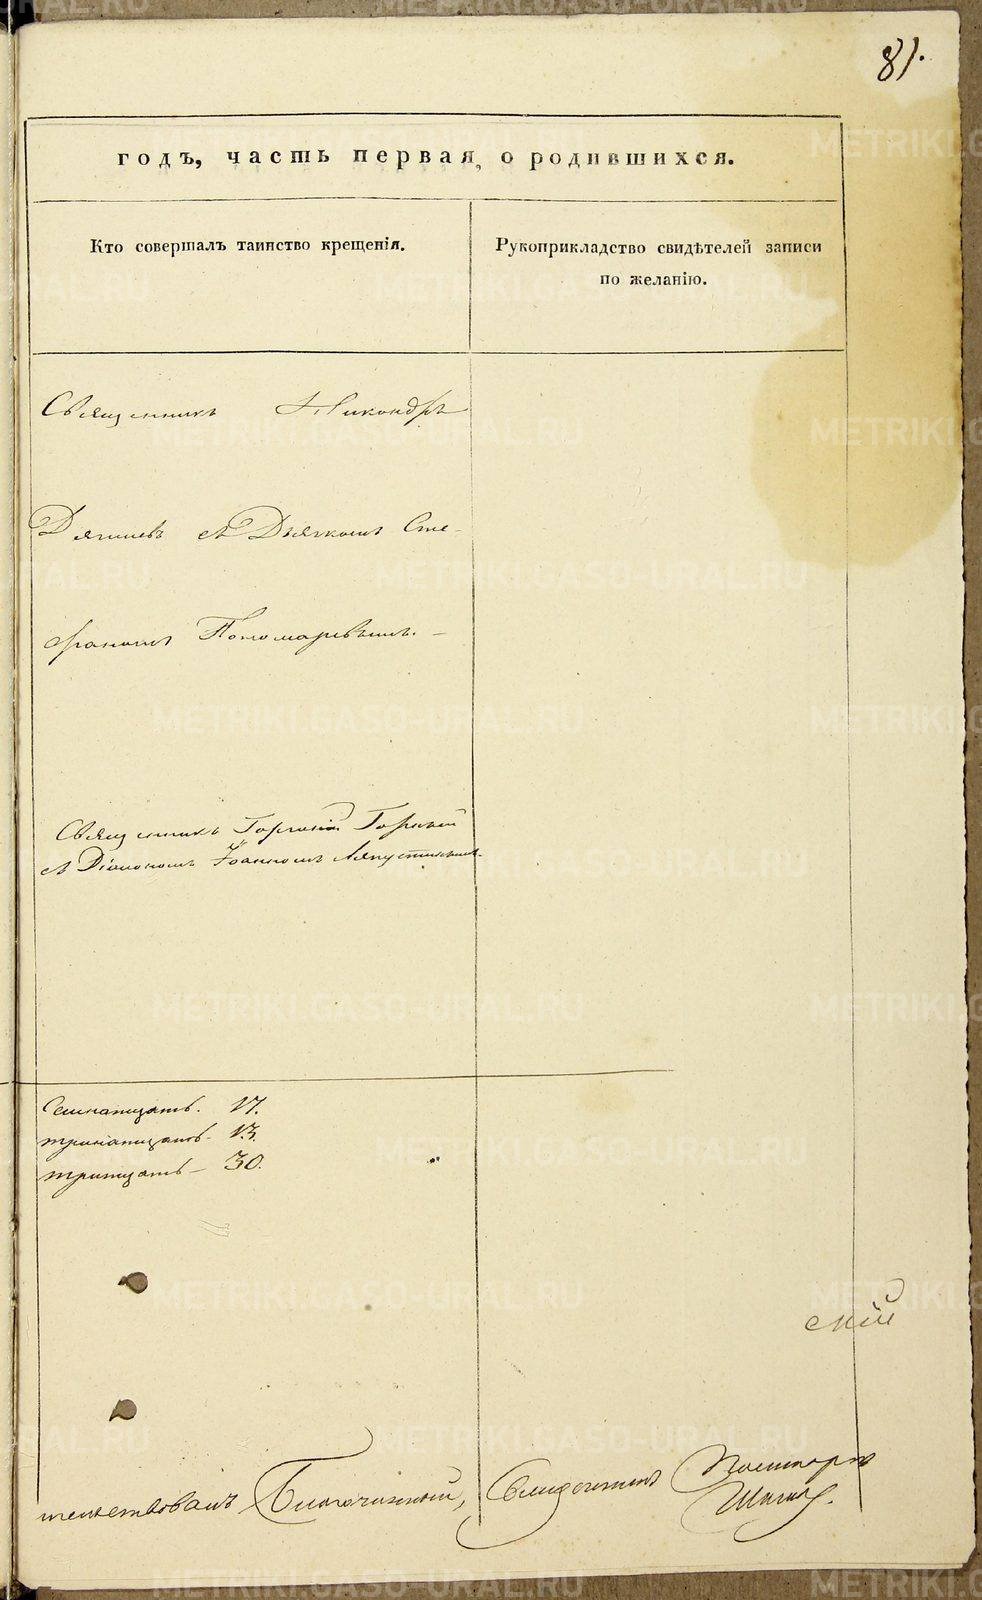 81.
годъ, часть первая, о родившихся.
Кто совершалъ таинство крещенія.
Рукоприкладство свидѣтелей записи
по желанію.
Священникъ Никандръ
Дягилевъ съ Дьячкомъ Сте-
фаномъ Пономаревымъ.
Священникъ Горный
съ Діакономъ Іоанномъ Ляпустинымъ.
Семнатцать. 17.
тринатцать. 13.
тритцать — 30.
скій
тельствовалъ Благочинный, Священникъ
METRIKI.GASO-URAL.RU